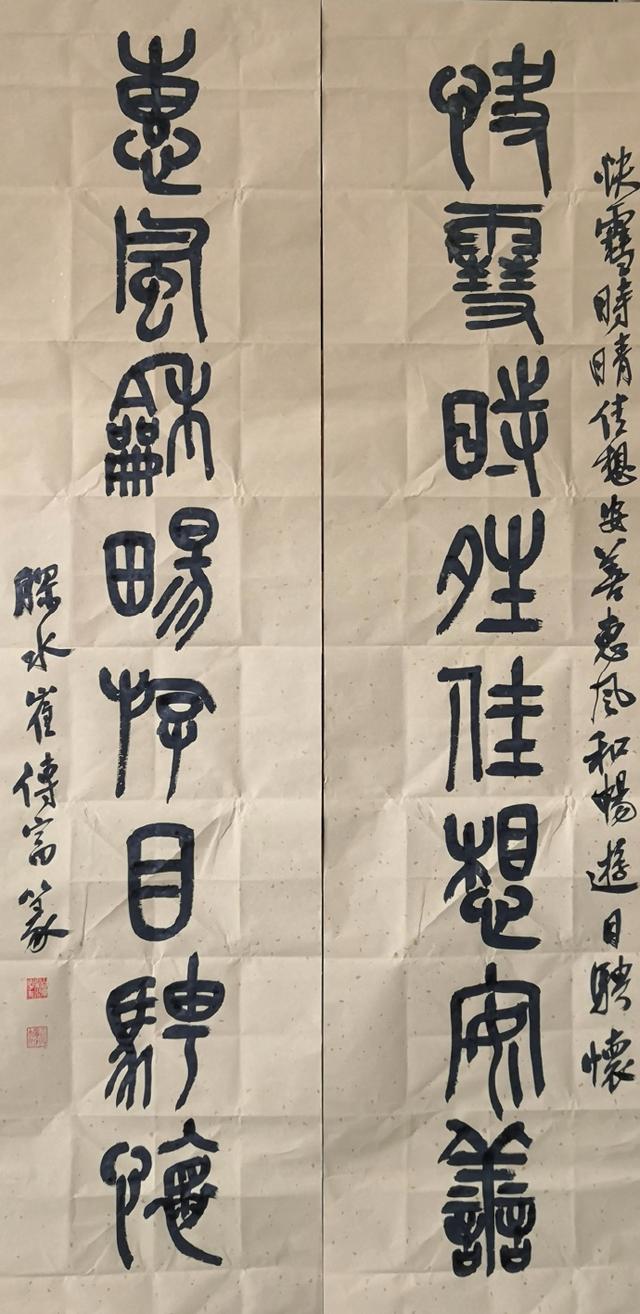 快雪時晴佳想安善惠風和暢遊目騁懷
快雪時晴佳想安善
惠風龢暢游目騁懷
膠水崔傳富篆